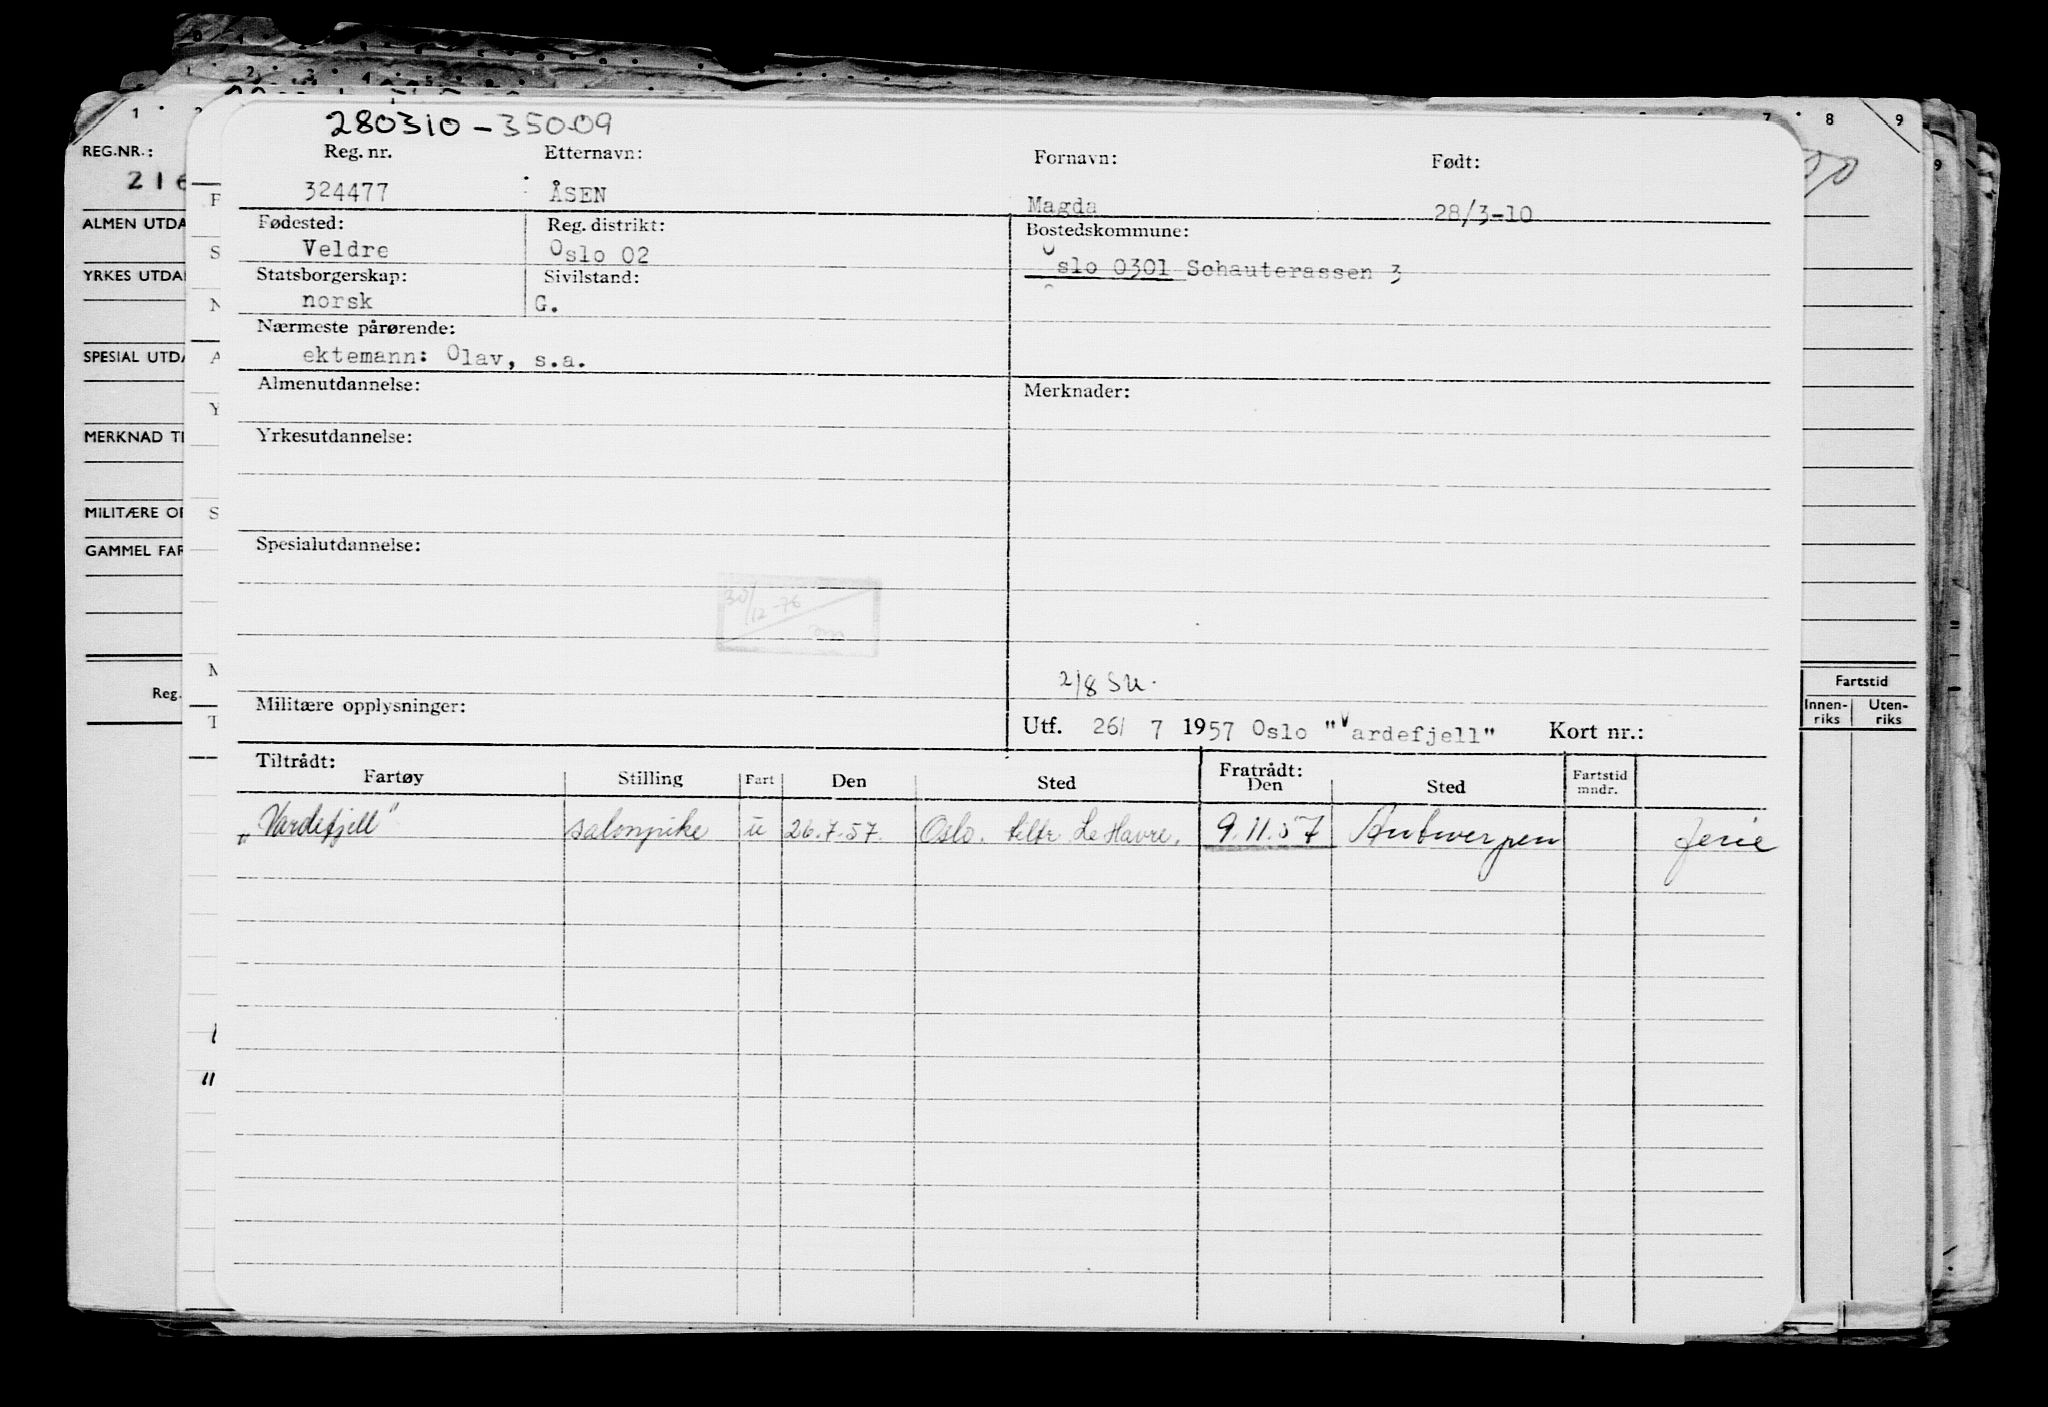 280310-35009
Reg. nr. Etternavn: Fornavn: Født:
324477 ÅSEN Magda 28/3-10
Fødested: Reg. distrikt: Bostedskommune:
Veldre Oslo 02 Oslo 0301 Schauterassen 3
Statsborgerskap: Sivilstand:
norsk G.
Nærmeste pårørende:
ektemann: Olav, s.a.
Almenutdannelse: Merknader:
Yrkesutdannelse:
Spesialutdannelse:
30/12-76
2/8 SU.
Militære opplysninger:
Utf. 26/ 7 1957 Oslo "Vardefjell" Kort nr.:
Tiltrådt: Fratrådt:
Fartøy Stilling Fart Den Sted Den Sted Fartstid mndr.
„Vardefjell" salonpike u 26.7.57. Oslo. tiltr. Le Havre. 9.11.57 Antwerpen ferie
1 7 8 9
REG.NR.:
216
ALMEN UTDA
YRKES UTDA
SPESIAL UTDA
MERKNAD TI
MILITÆRE OP
GAMMEL FAR
Reg.
Fartstid
Innen-riks Uten-riks